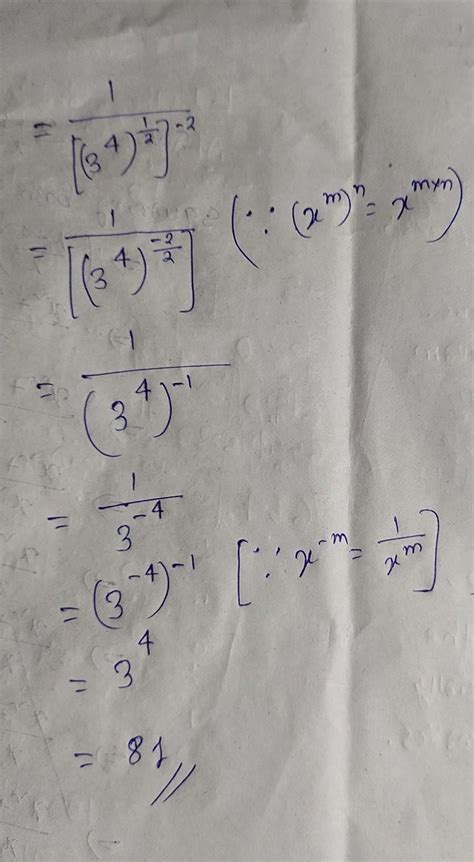 = 1/[(3^4)^(1/2)]^-2
= 1/[(3^4)^(-2/2)] (∵ (x^m)^n = x^(m×n))
= 1/(3^4)^-1
= 1/3^-4
= (3^-4)^-1 [∵ x^-m = 1/x^m]
= 3^4
= 81 //